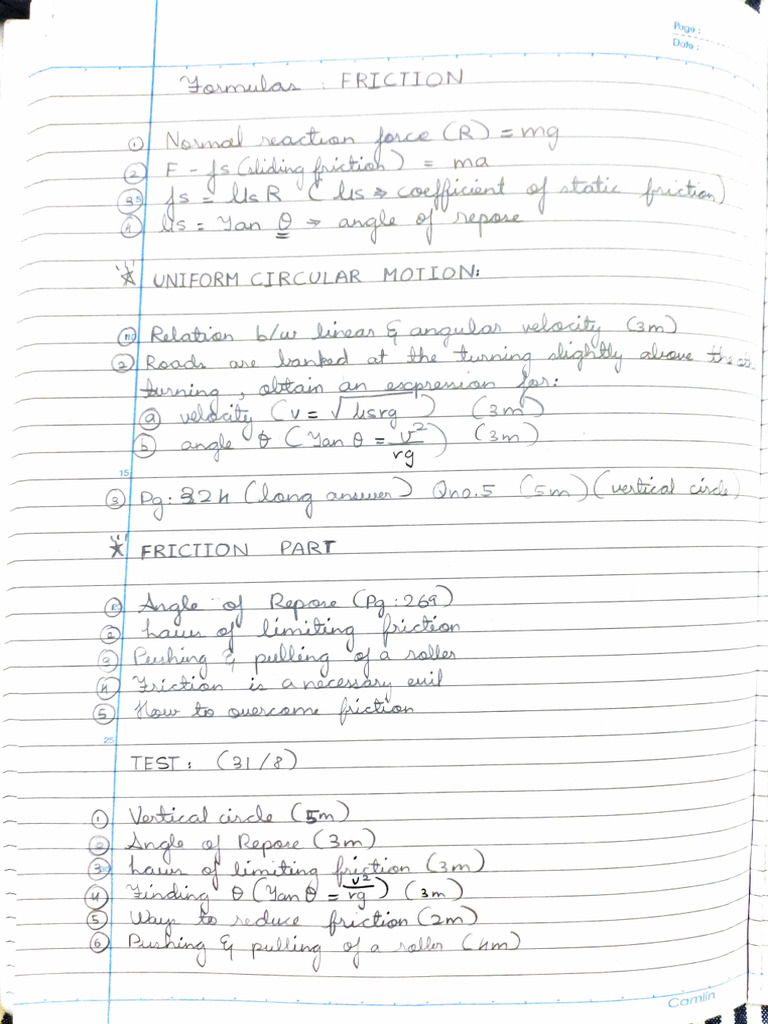 Page :
Date :
Formulas : FRICTION
① Normal reaction force (R) = mg
② F - fs (sliding friction) = ma
③ fs = μsR ( μs → coefficient of static friction)
④ μs = Tan θ → angle of repose
* UNIFORM CIRCULAR MOTION:
① Relation b/w linear & angular velocity (3m)
② Roads are banked at the turning slightly above the
turning, obtain an expression for:
ⓐ velocity (v = √μsrg ) (3m)
ⓑ angle θ (Tan θ = v²/rg) (3m)
15
③ Pg: 324 (long answer) Qno.5 (5m) (vertical circle)
* FRICTION PART
① Angle of Repose (Pg: 269)
② Laws of limiting friction
③ Pushing & pulling of a roller
④ Friction is a necessary evil
⑤ How to overcome friction
25
TEST: (31/8)
① Vertical circle (5m)
② Angle of Repose (3m)
③ Laws of limiting friction (3m)
④ Finding θ (Tan θ = v²/rg) (3m)
⑤ Ways to reduce friction (2m)
⑥ Pushing & pulling of a roller (4m)
Camlin